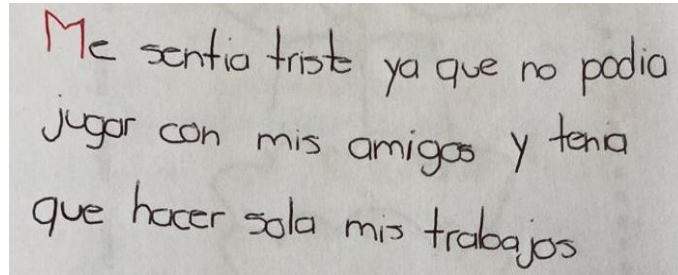 Me sentia triste ya que no podia
jugar con mis amigos y tenia
que hacer sola mis trabajos